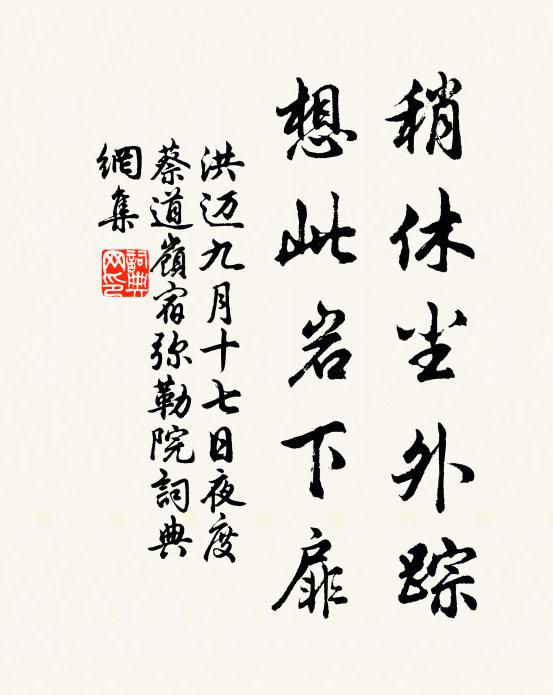 稍休尘外踪
想此岩下扉
洪迈九月十七日夜度
蔡道嶺宿弥勒院詞典
網集
詞典
网印